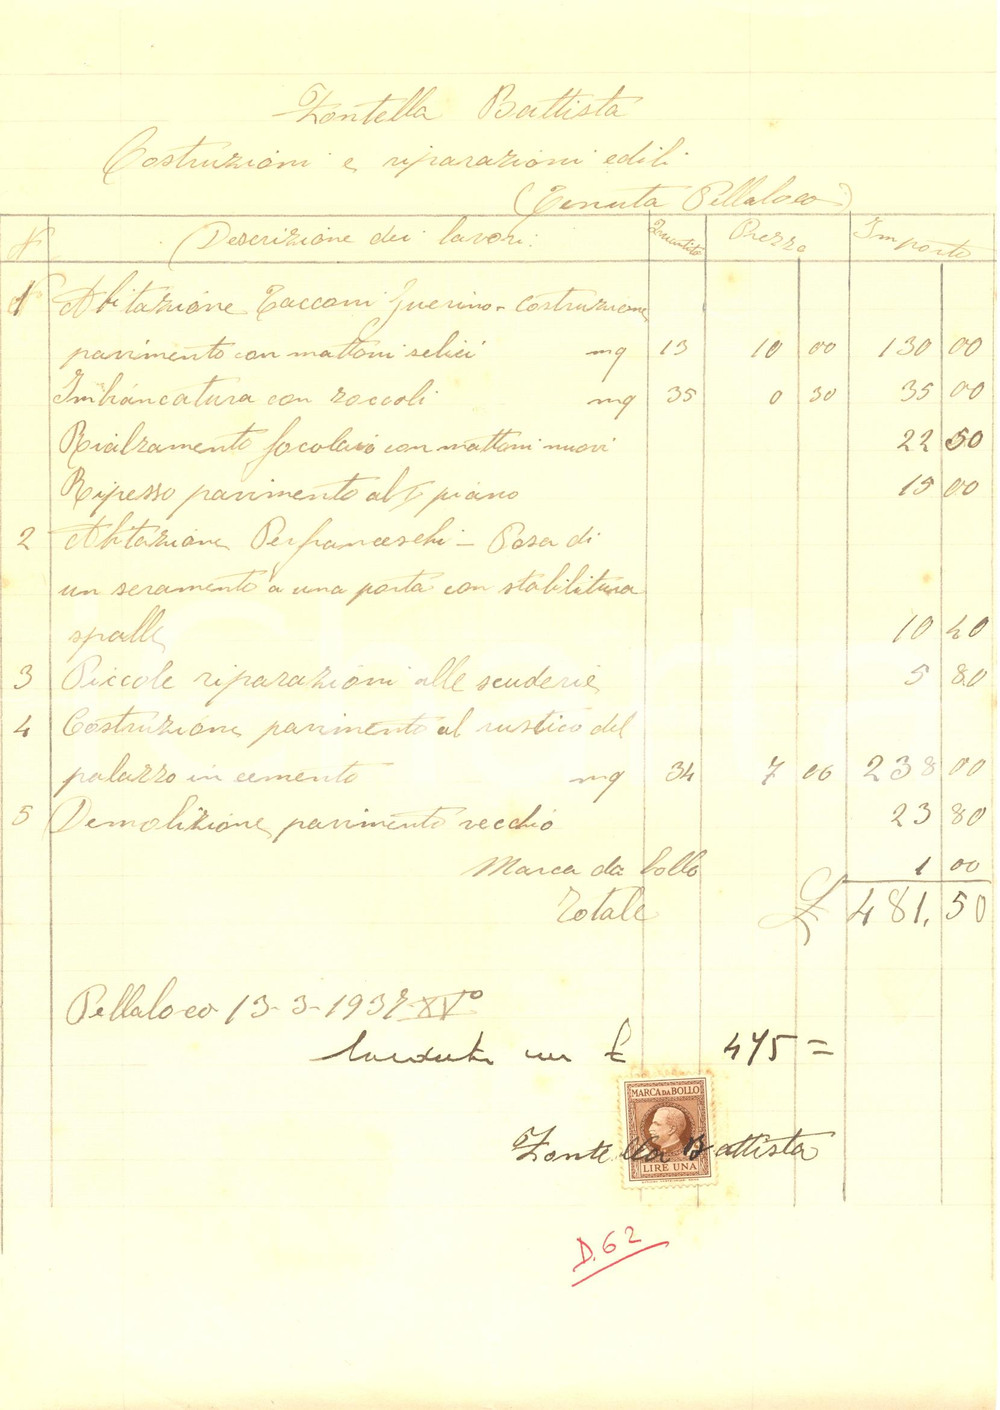 Zontella Battista
Costruzioni e riparazioni edili
(Tenuta Pellaloco)
N Descrizione dei lavori: Quantità Prezzo Importo
1 Abitazione Tacconi Guerino - costruzione
pavimento con mattoni selici mq 13 10 00 130 00
Imbiancatura con zoccoli mq 35 0 30 35 00
Rialzamento focolaio con mattoni nuovi 22 50
Ripesso pavimento al I piano 15 00
2 Abitazione Pierfranceschi - Posa di
un seramento a una porta con stabilitura
spalle 10 40
3 Piccole riparazioni alle scuderie 5 80
4 Costruzione pavimento al rustico del
palazzo in cemento mq 34 7 00 238 00
5 Demolizione pavimento vecchio 23 80
Marca da bollo 1 00
Totale £ 481,50
Pellaloco 13-3-1937 XV°
£ 475 =
MARCA DA BOLLO
Zontella Battista
LIRE UNA
D.62